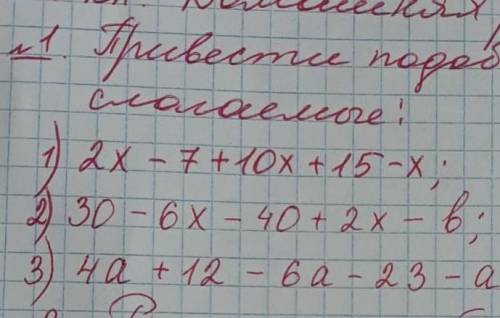 №1. Привести подоб
слагаемые:
1) 2x - 7 + 10x + 15 - x;
2) 30 - 6x - 40 + 2x - b;
3) 4a + 12 - 6a - 23 - a